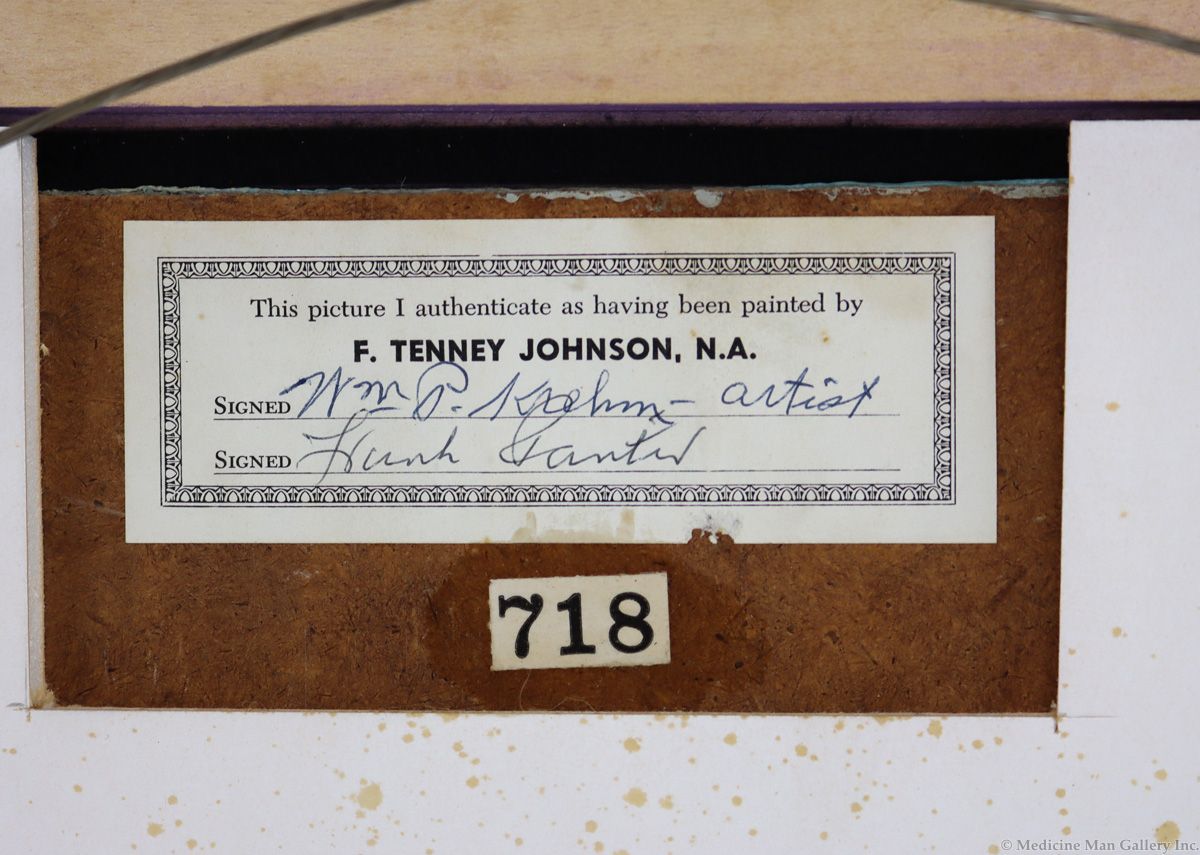 This picture I authenticate as having been painted by
F. TENNEY JOHNSON, N.A.
SIGNED Wm P. Krehm - artist
SIGNED Frank
718
© Medicine Man Gallery Inc.